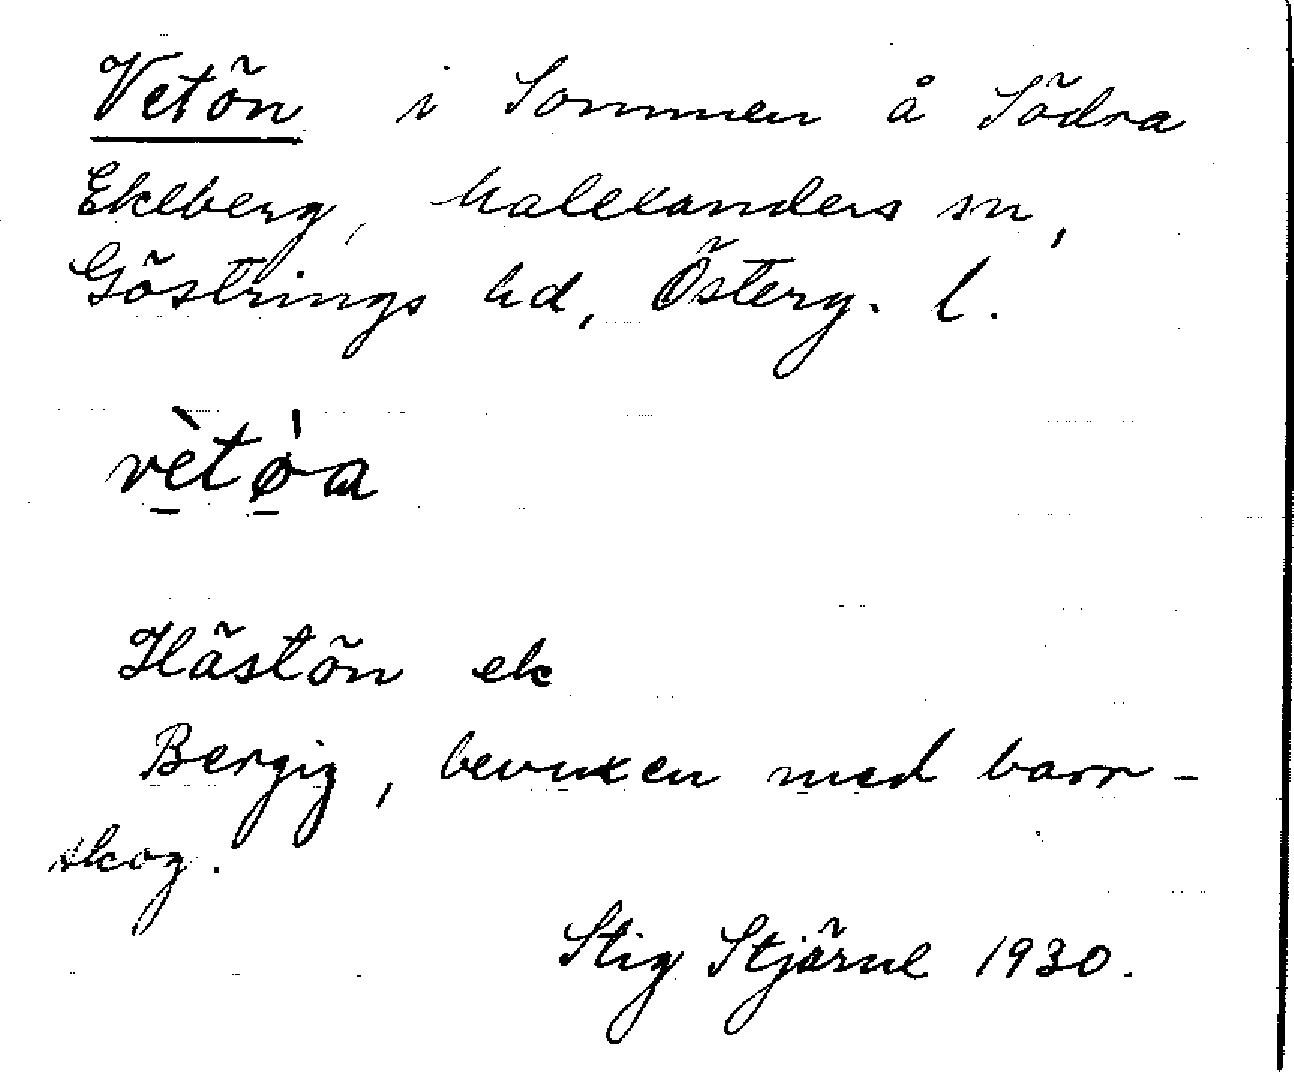 Vetön i Sommen å Södra
Ekeberg, Malexanders sn,
Göstrings hd, Österg. l.
vètø̀a
Hästön ek
Bergig, bevuxen med barr-
skog.
Stig Stjärne 1930.